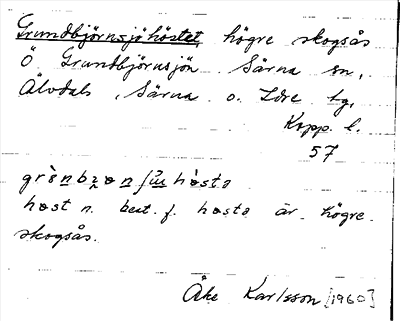 Grundbjörnsjöhöstet, högre skogsås
Ö Grundbjörnsjön Särna sn,
Älvdals, Särna o. Idre tg,
Kopp. l.
57
høst n. best. f. høstə är högre
skogsås.
Åke Karlsson [1960]